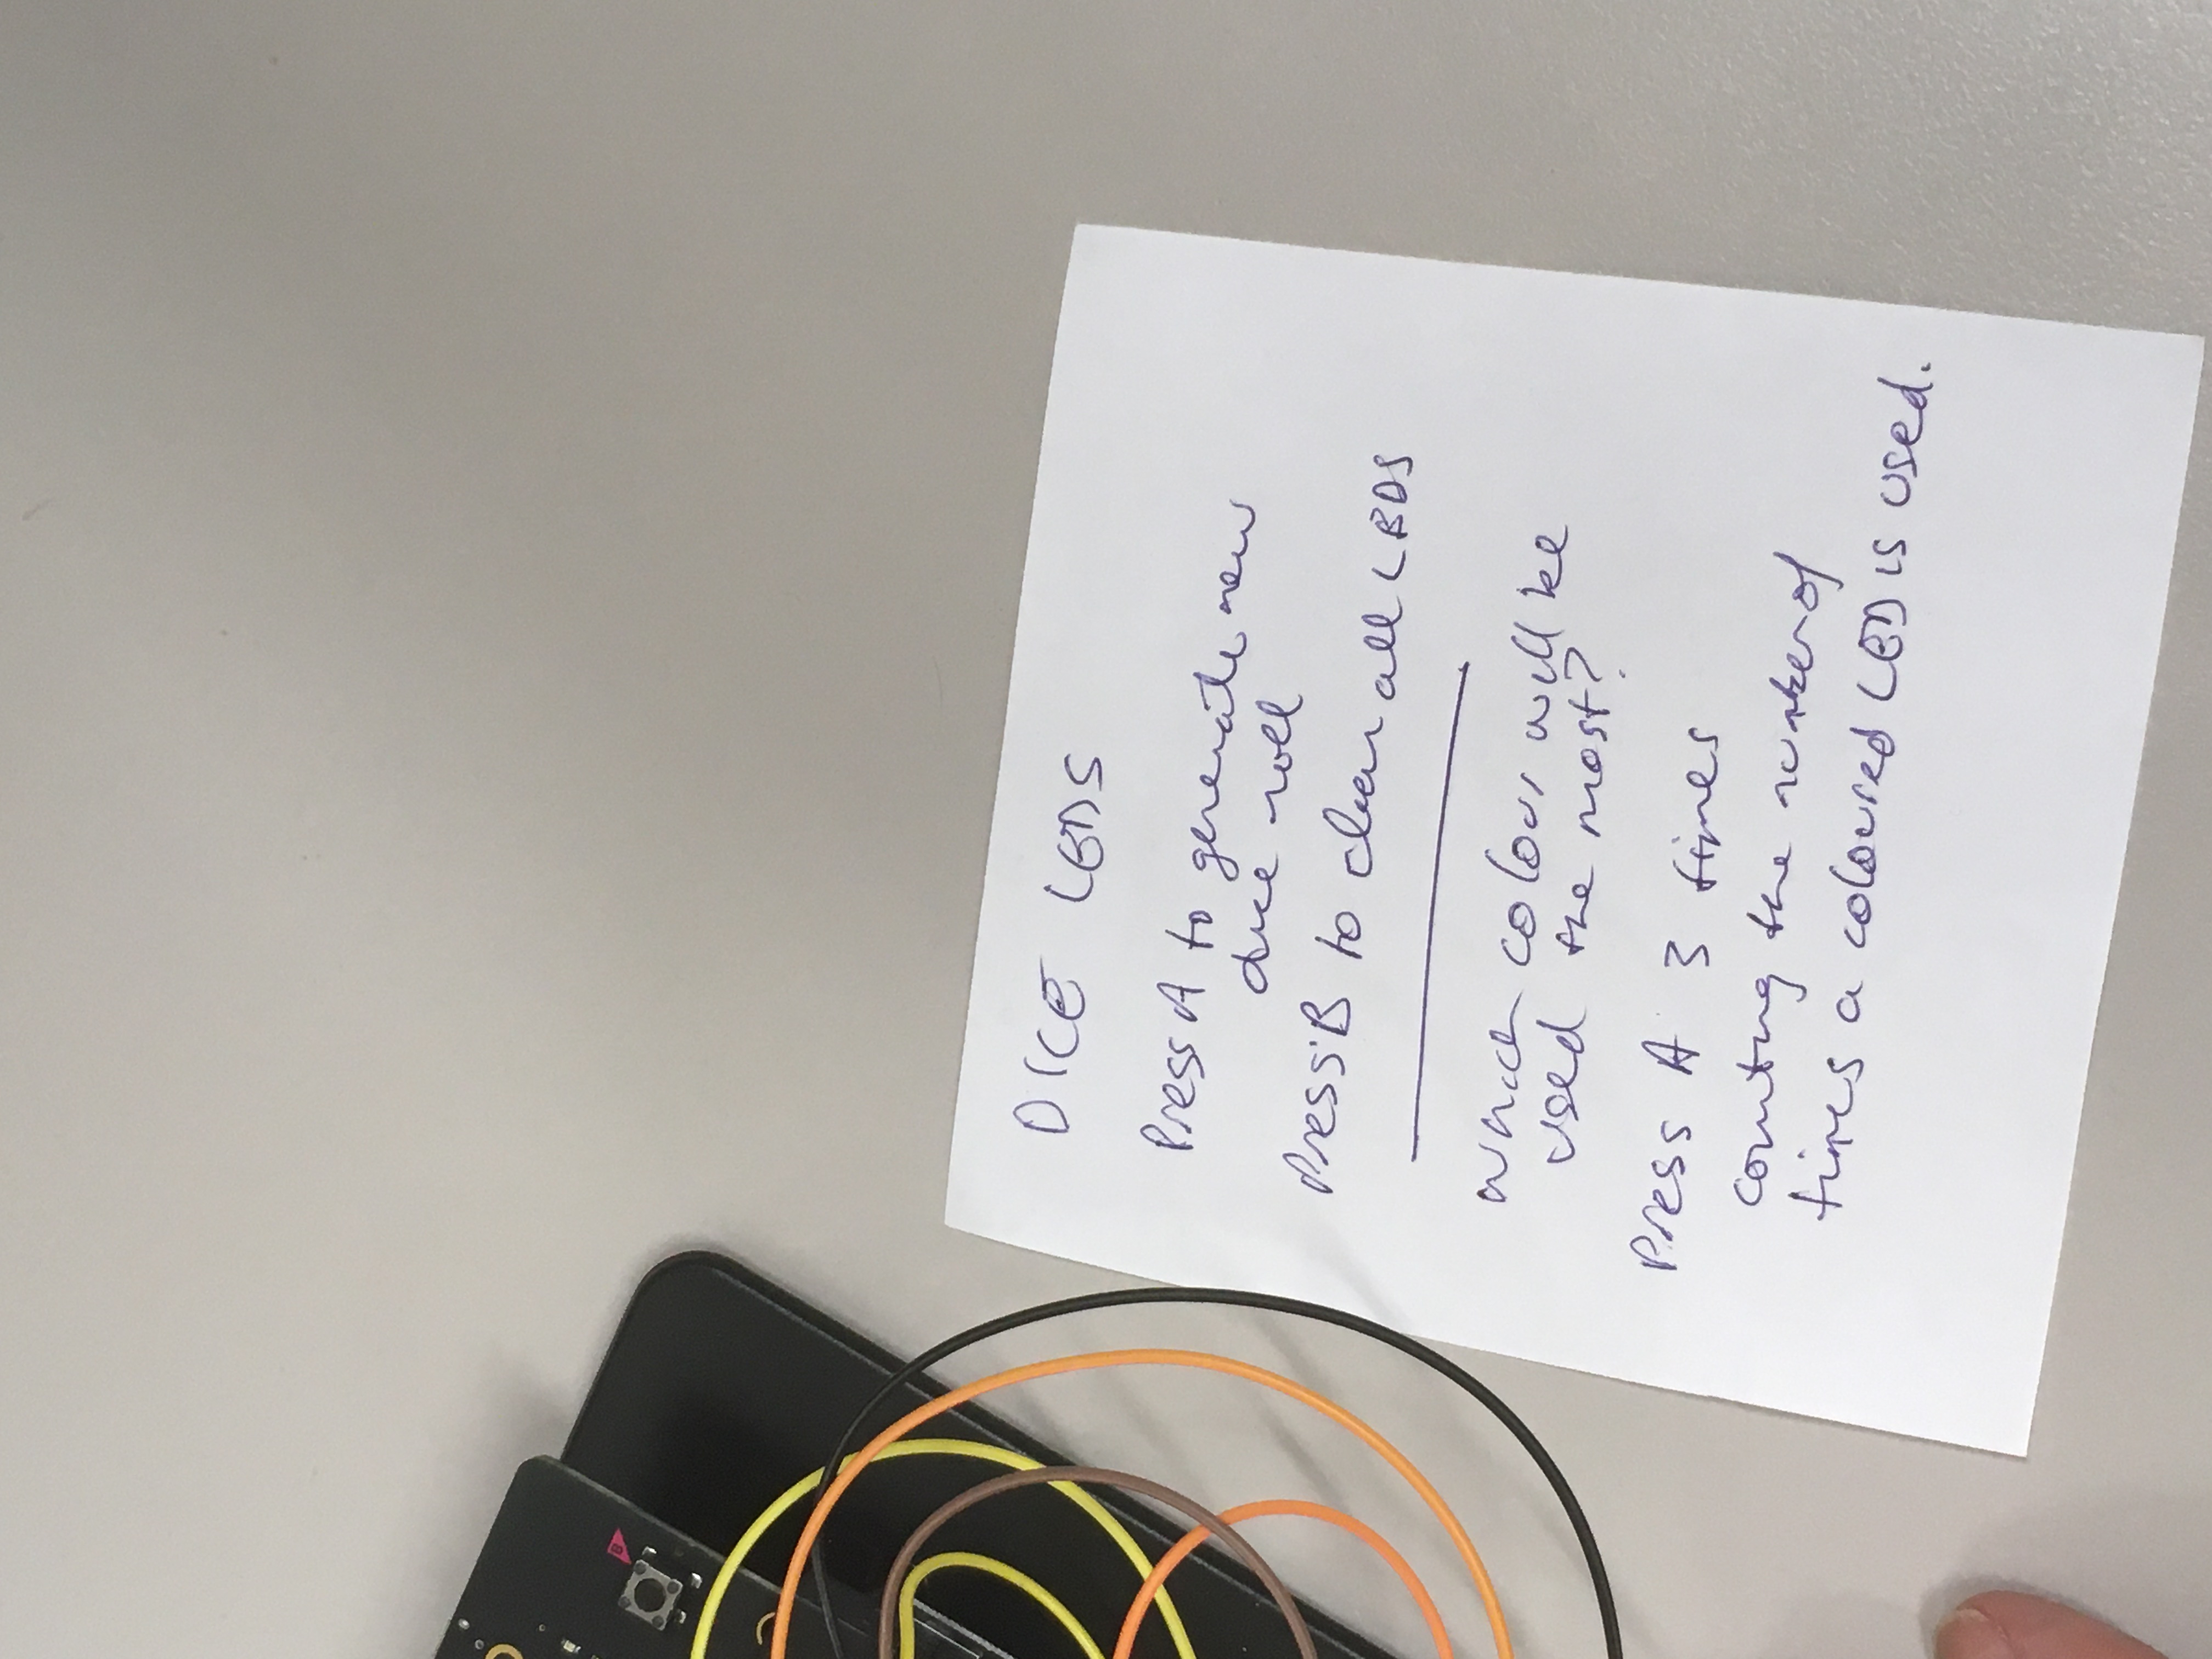 B
DICE LEDS
Press A to generate new
dice roll
Press B to clear all LEDS
which colour will be
used the most?
Press A 3 times
counting the number of
times a coloured LED is used.